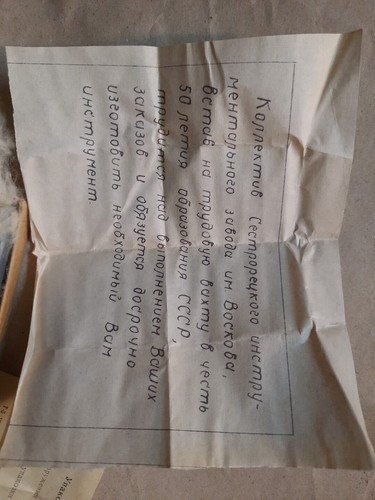 Коллектив Сестрорецкого инстру-
ментального завода им. Воскова,
встав на трудовую вахту в честь
50 летия образования СССР,
трудится над выполнением Ваших
заказов и обязуется досрочно
изготовить необходимый Вам
инструмент.
Упак